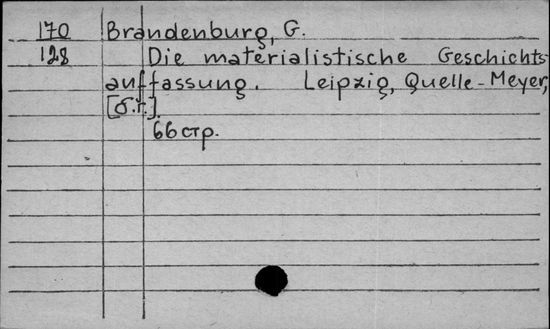 170 Brandenburg, G.
128 Die materialistische Geschichts-
auffassung. Leipzig, Quelle-Meyer,
[б.г.].
66 стр.